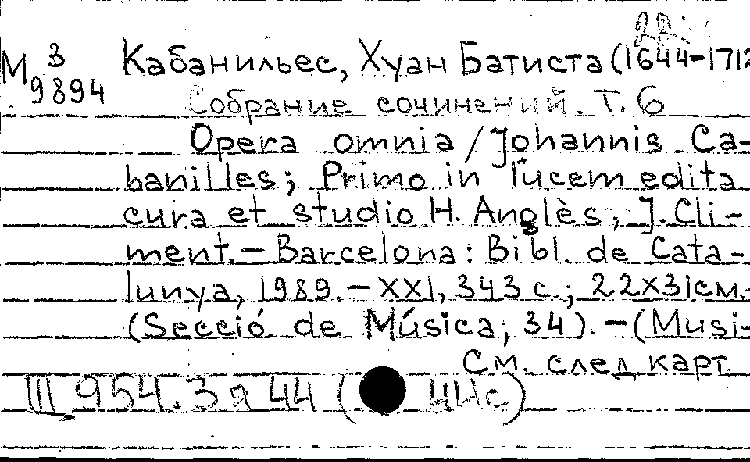 М 3 Кабанильес, Хуан Батиста (1644-1712
9894 Собрание сочинений. Т. 6
Opera omnia / Johannis Ca-
banilles; Primo in lucem edita
cura et studio H. Anglès, J. Cli-
ment. – Barcelona: Bibl. de Cata-
lunya, 1989. – XXI, 343 с.; 22x31см.
(Secció de Música; 34). – (Musi-
См. след карт
III 954.3 я 44 (